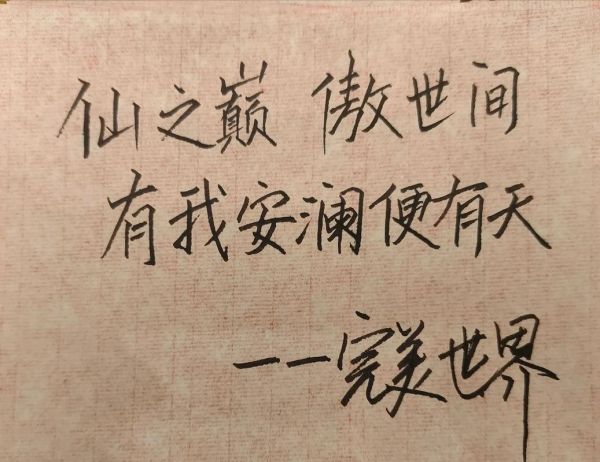 仙之巅 傲世间
有我安澜便有天
——完美世界